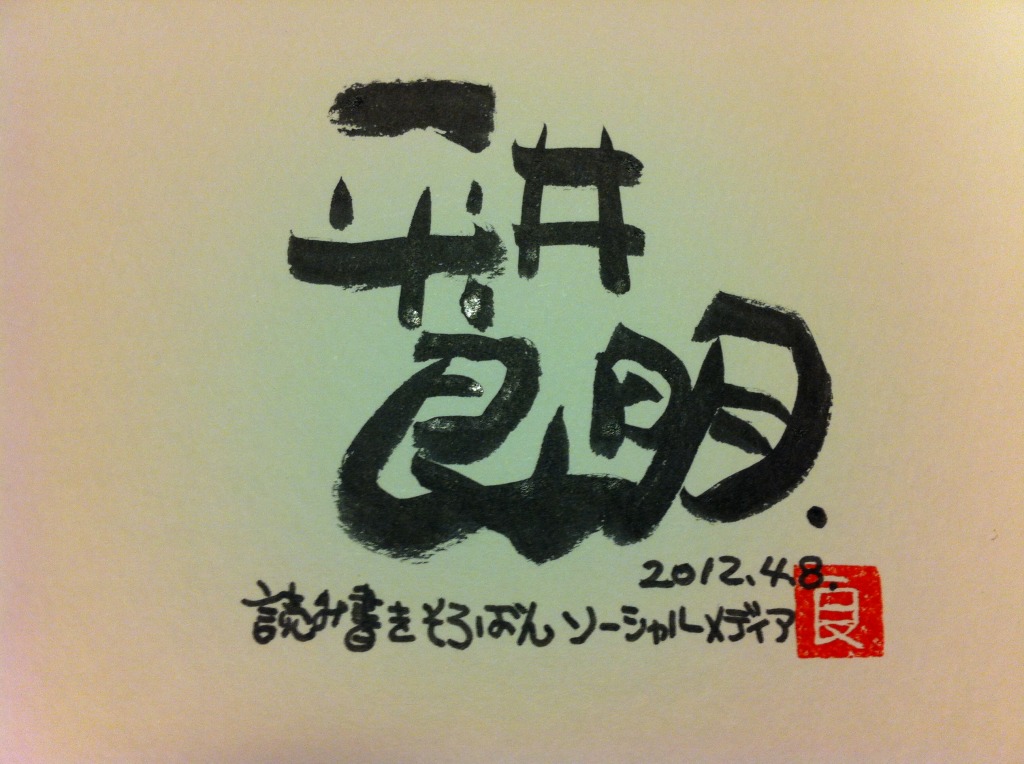 平井
良明.
2012.4.8.
読み書きそろばん ソーシャルメディア
良